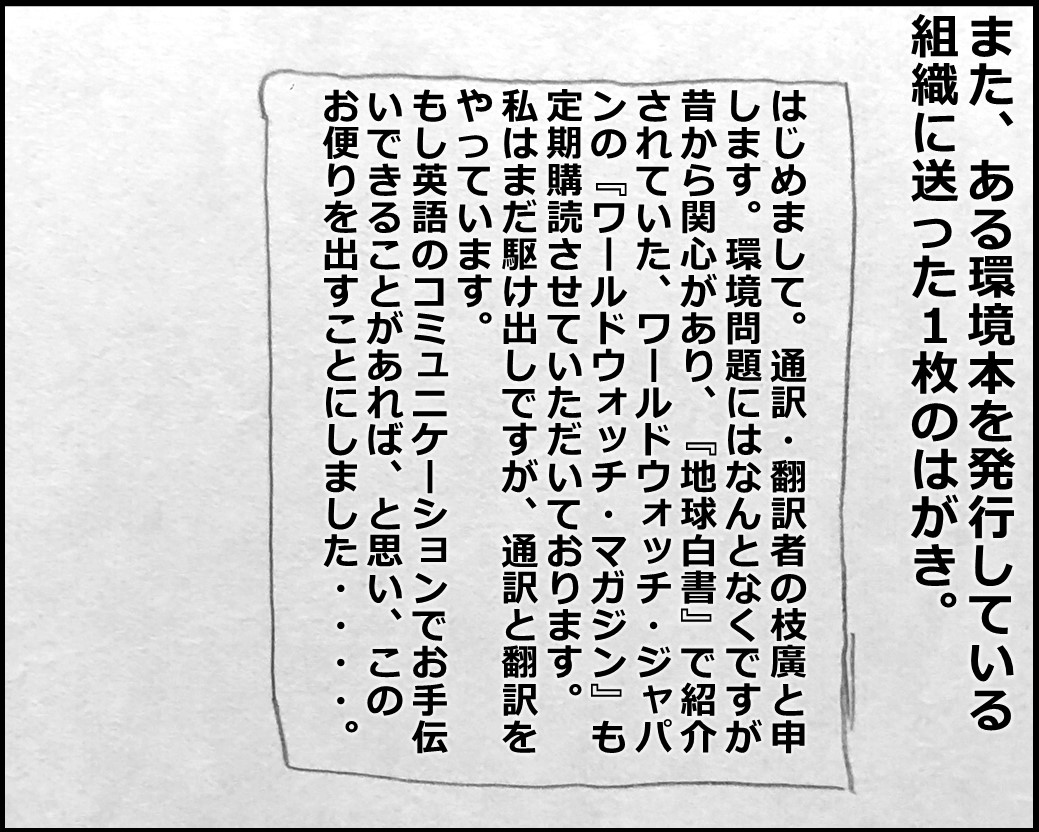 また、ある環境本を発行している
組織に送った１枚のはがき。
はじめまして。通訳・翻訳者の枝廣と申
します。環境問題にはなんとなくですが
昔から関心があり、『地球白書』で紹介
されていた、ワールドウォッチ・ジャパ
ンの『ワールドウォッチ・マガジン』も
定期購読させていただいております。
私はまだ駆け出しですが、通訳と翻訳を
やっています。
もし英語のコミュニケーションでお手伝
いできることがあれば、と思い、この
お便りを出すことにしました・・・・・。